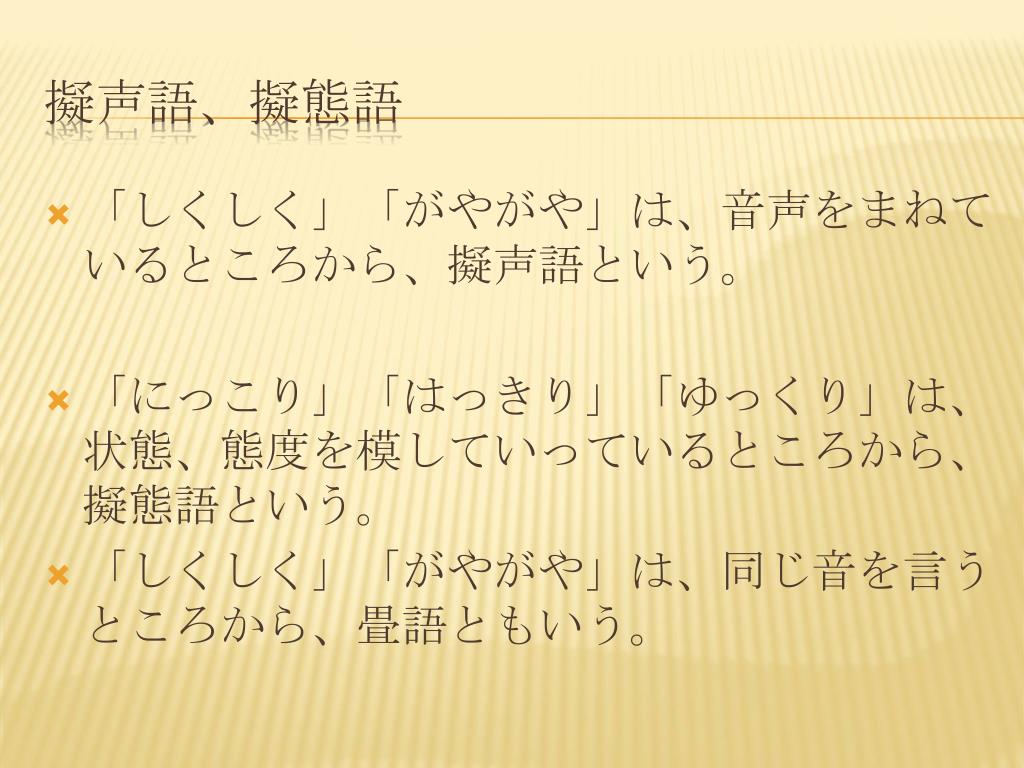 擬声語、擬態語
「しくしく」「がやがや」は、音声をまねて
いるところから、擬声語という。
「にっこり」「はっきり」「ゆっくり」は、
状態、態度を模していっているところから、
擬態語という。
「しくしく」「がやがや」は、同じ音を言う
ところから、畳語ともいう。